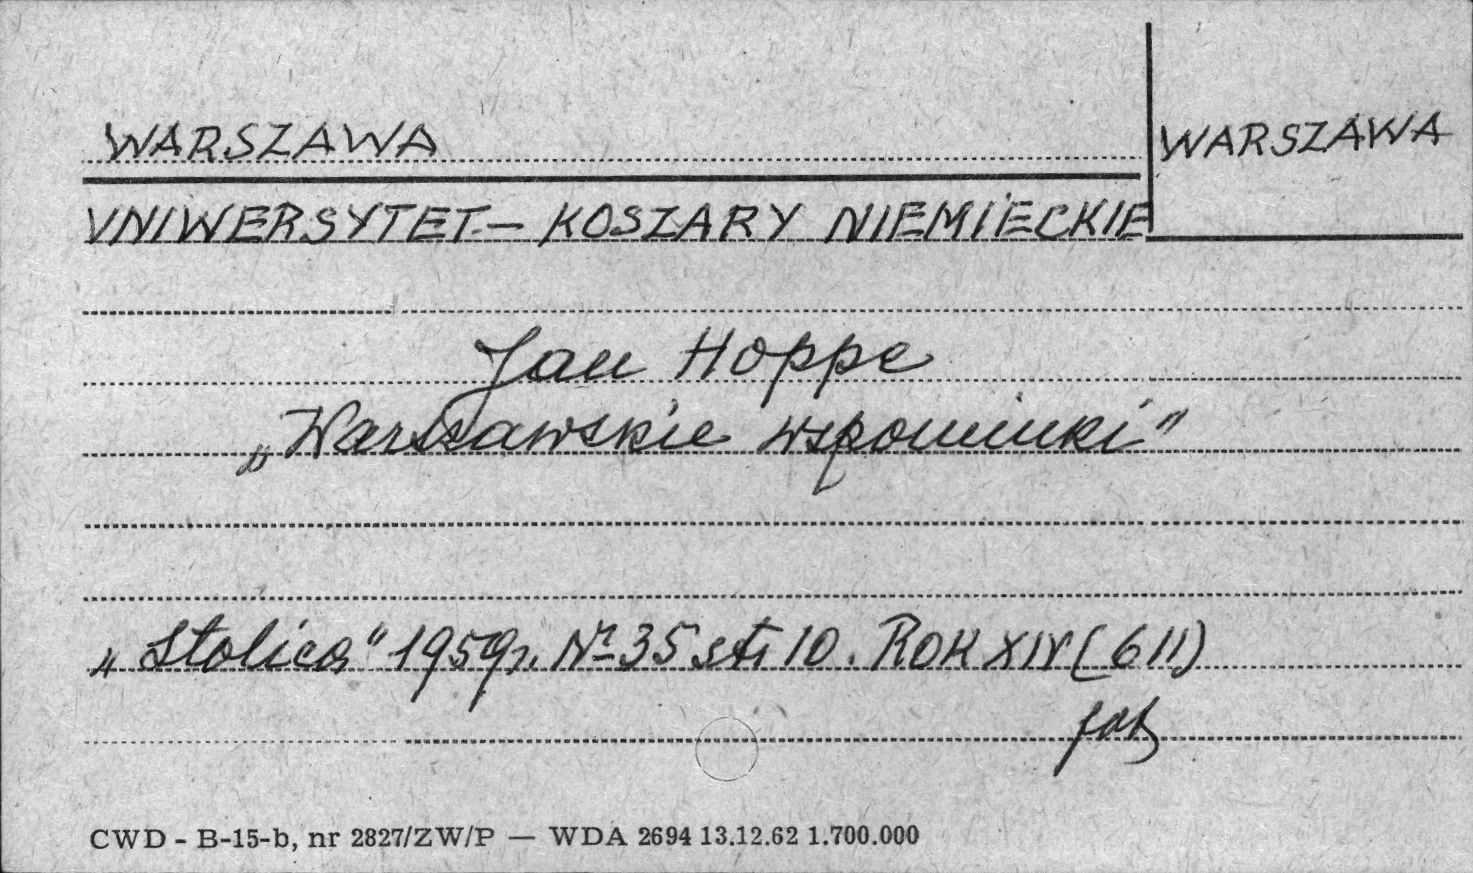 WARSZAWA
WARSZAWA
UNIWERSYTET - KOSZARY NIEMIECKIE
Jan Hoppe
„Warszawskie wspominki"
„Stolica" 1959r. Nr 35 str 10. ROK XIV (611)
CWD - B-15-b, nr 2827/ZW/P — WDA 2694 13.12.62 1.700.000